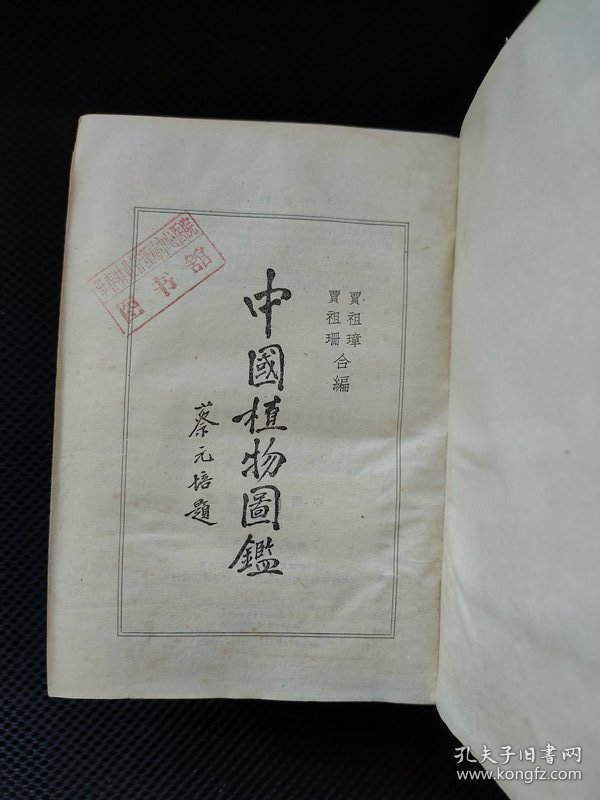 賈祖璋
賈祖珊
合編
中國植物圖鑑
蔡元培題
图书馆
孔夫子旧书网
www.kongfz.com